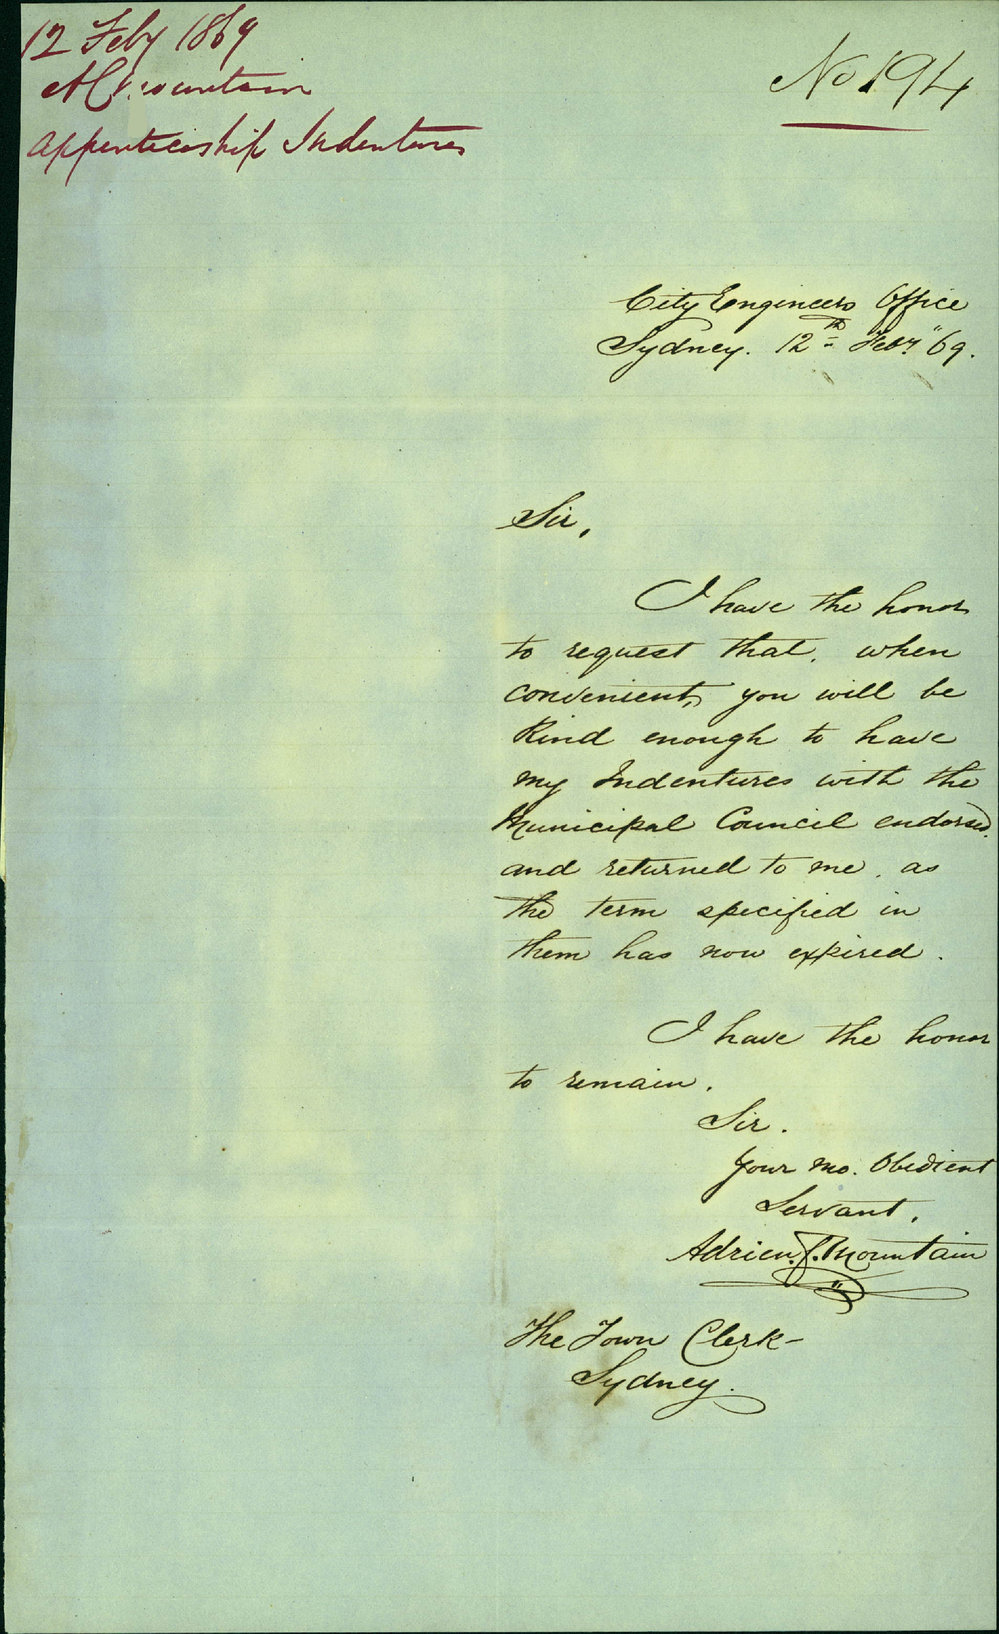 12 Feby 1869
A C Mountain
Apprenticeship Indentures
No 194
City Engineers Office
Sydney. 12th Feby. "69.
Sir,
I have the honor
to request that, when
convenient, you will be
kind enough to have
my Indentures with the
Municipal Council endorsed,
and returned to me, as
the term specified in
them has now expired.
I have the honor
to remain.
Sir.
Your mo. Obedient
Servant,
Adrien. C. Mountain
The Town Clerk-
Sydney.